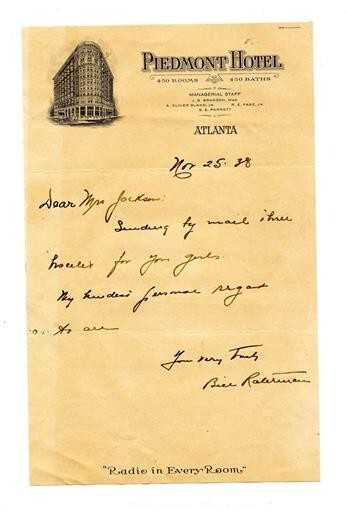 PIEDMONT HOTEL
450 ROOMS 450 BATHS
MANAGERIAL STAFF
J. B. BRANDON, MGR
A. OLIVER BLAND, JR. R. E. PAGE, JR.
S. E. PARROTT
ATLANTA
Nov 25. 38
Dear Mrs Jackson:
Sending by mail three
for you girls.
My kindest personal regard
to all
Your very truly
Bill
"Radio in Every Room"